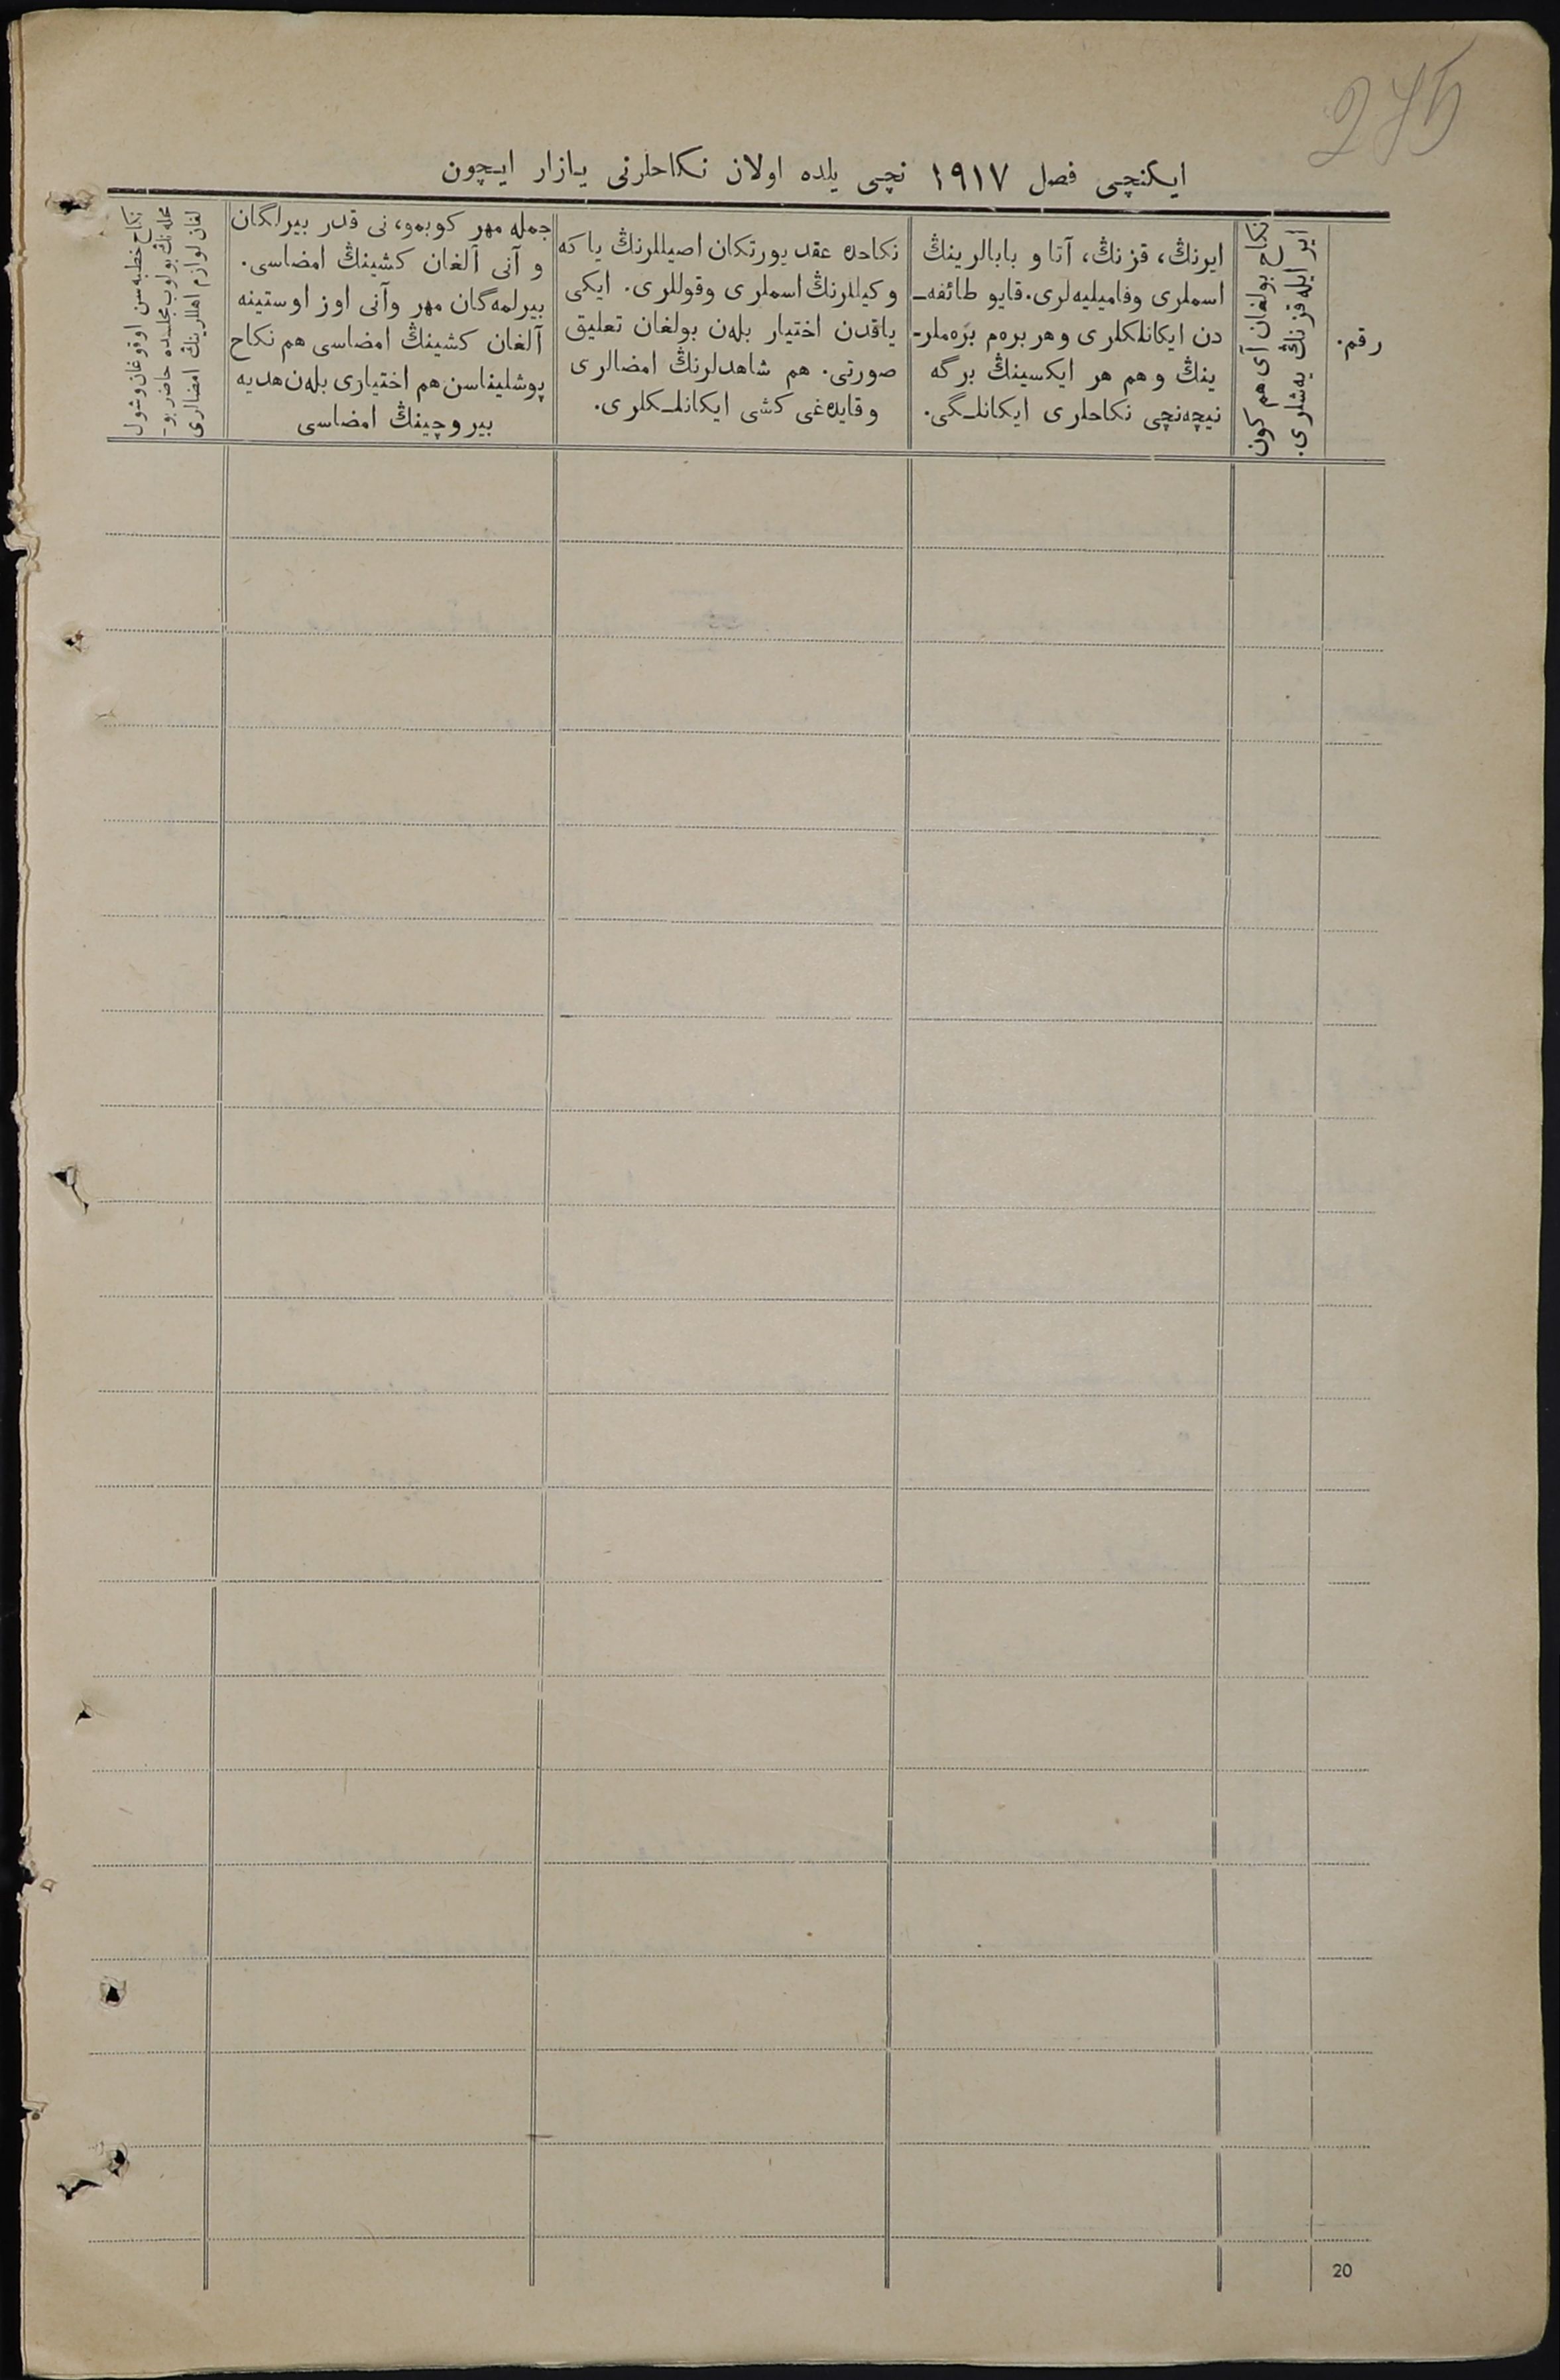 275
ایکنچی فصل ١٩١٧ نچی یلده اولان نکاحلرنی یازار ایچون
رقم.
نکاح بولغان آی هم کون
ایر ایله قزنڭ یەشلری.
ایرنڭ، قزنڭ، آتا و بابالرینڭ
اسملری وفامیلیەلری. قایو طائفه‌ـ
دن ایکانلکلری وهر برەم برەملرـ
ینڭ وهم هر ایکسینڭ برگه
نیچەنچی نکاحلری ایکانلـگی.
نکاحده عقد یورتکان اصیللرنڭ یا که
وکیللرنڭ اسملری وقوللری. ایکی
یاقدن اختیار بلەن بولغان تعلیق
صورتی. هم شاهدلرنڭ امضالری
وقایدەغی کشی ایکانلـکلری.
جمله مهر کوبمو، نی قدر بیرلگان
و آنی آلغان کشینڭ امضاسی.
بیرلمەگان مهر وآنی اوز اوستینه
آلغان کشینڭ امضاسی هم نکاح
پوشلیناسن هم اختیاری بلەن هدیه
بیروچینڭ امضاسی
نکاح خطبه‌سن اوقوغان وشول
محله‌نڭ بولوب مجلسده حاضر بوـ
لغان لوازم اهللرینڭ امضالری
20